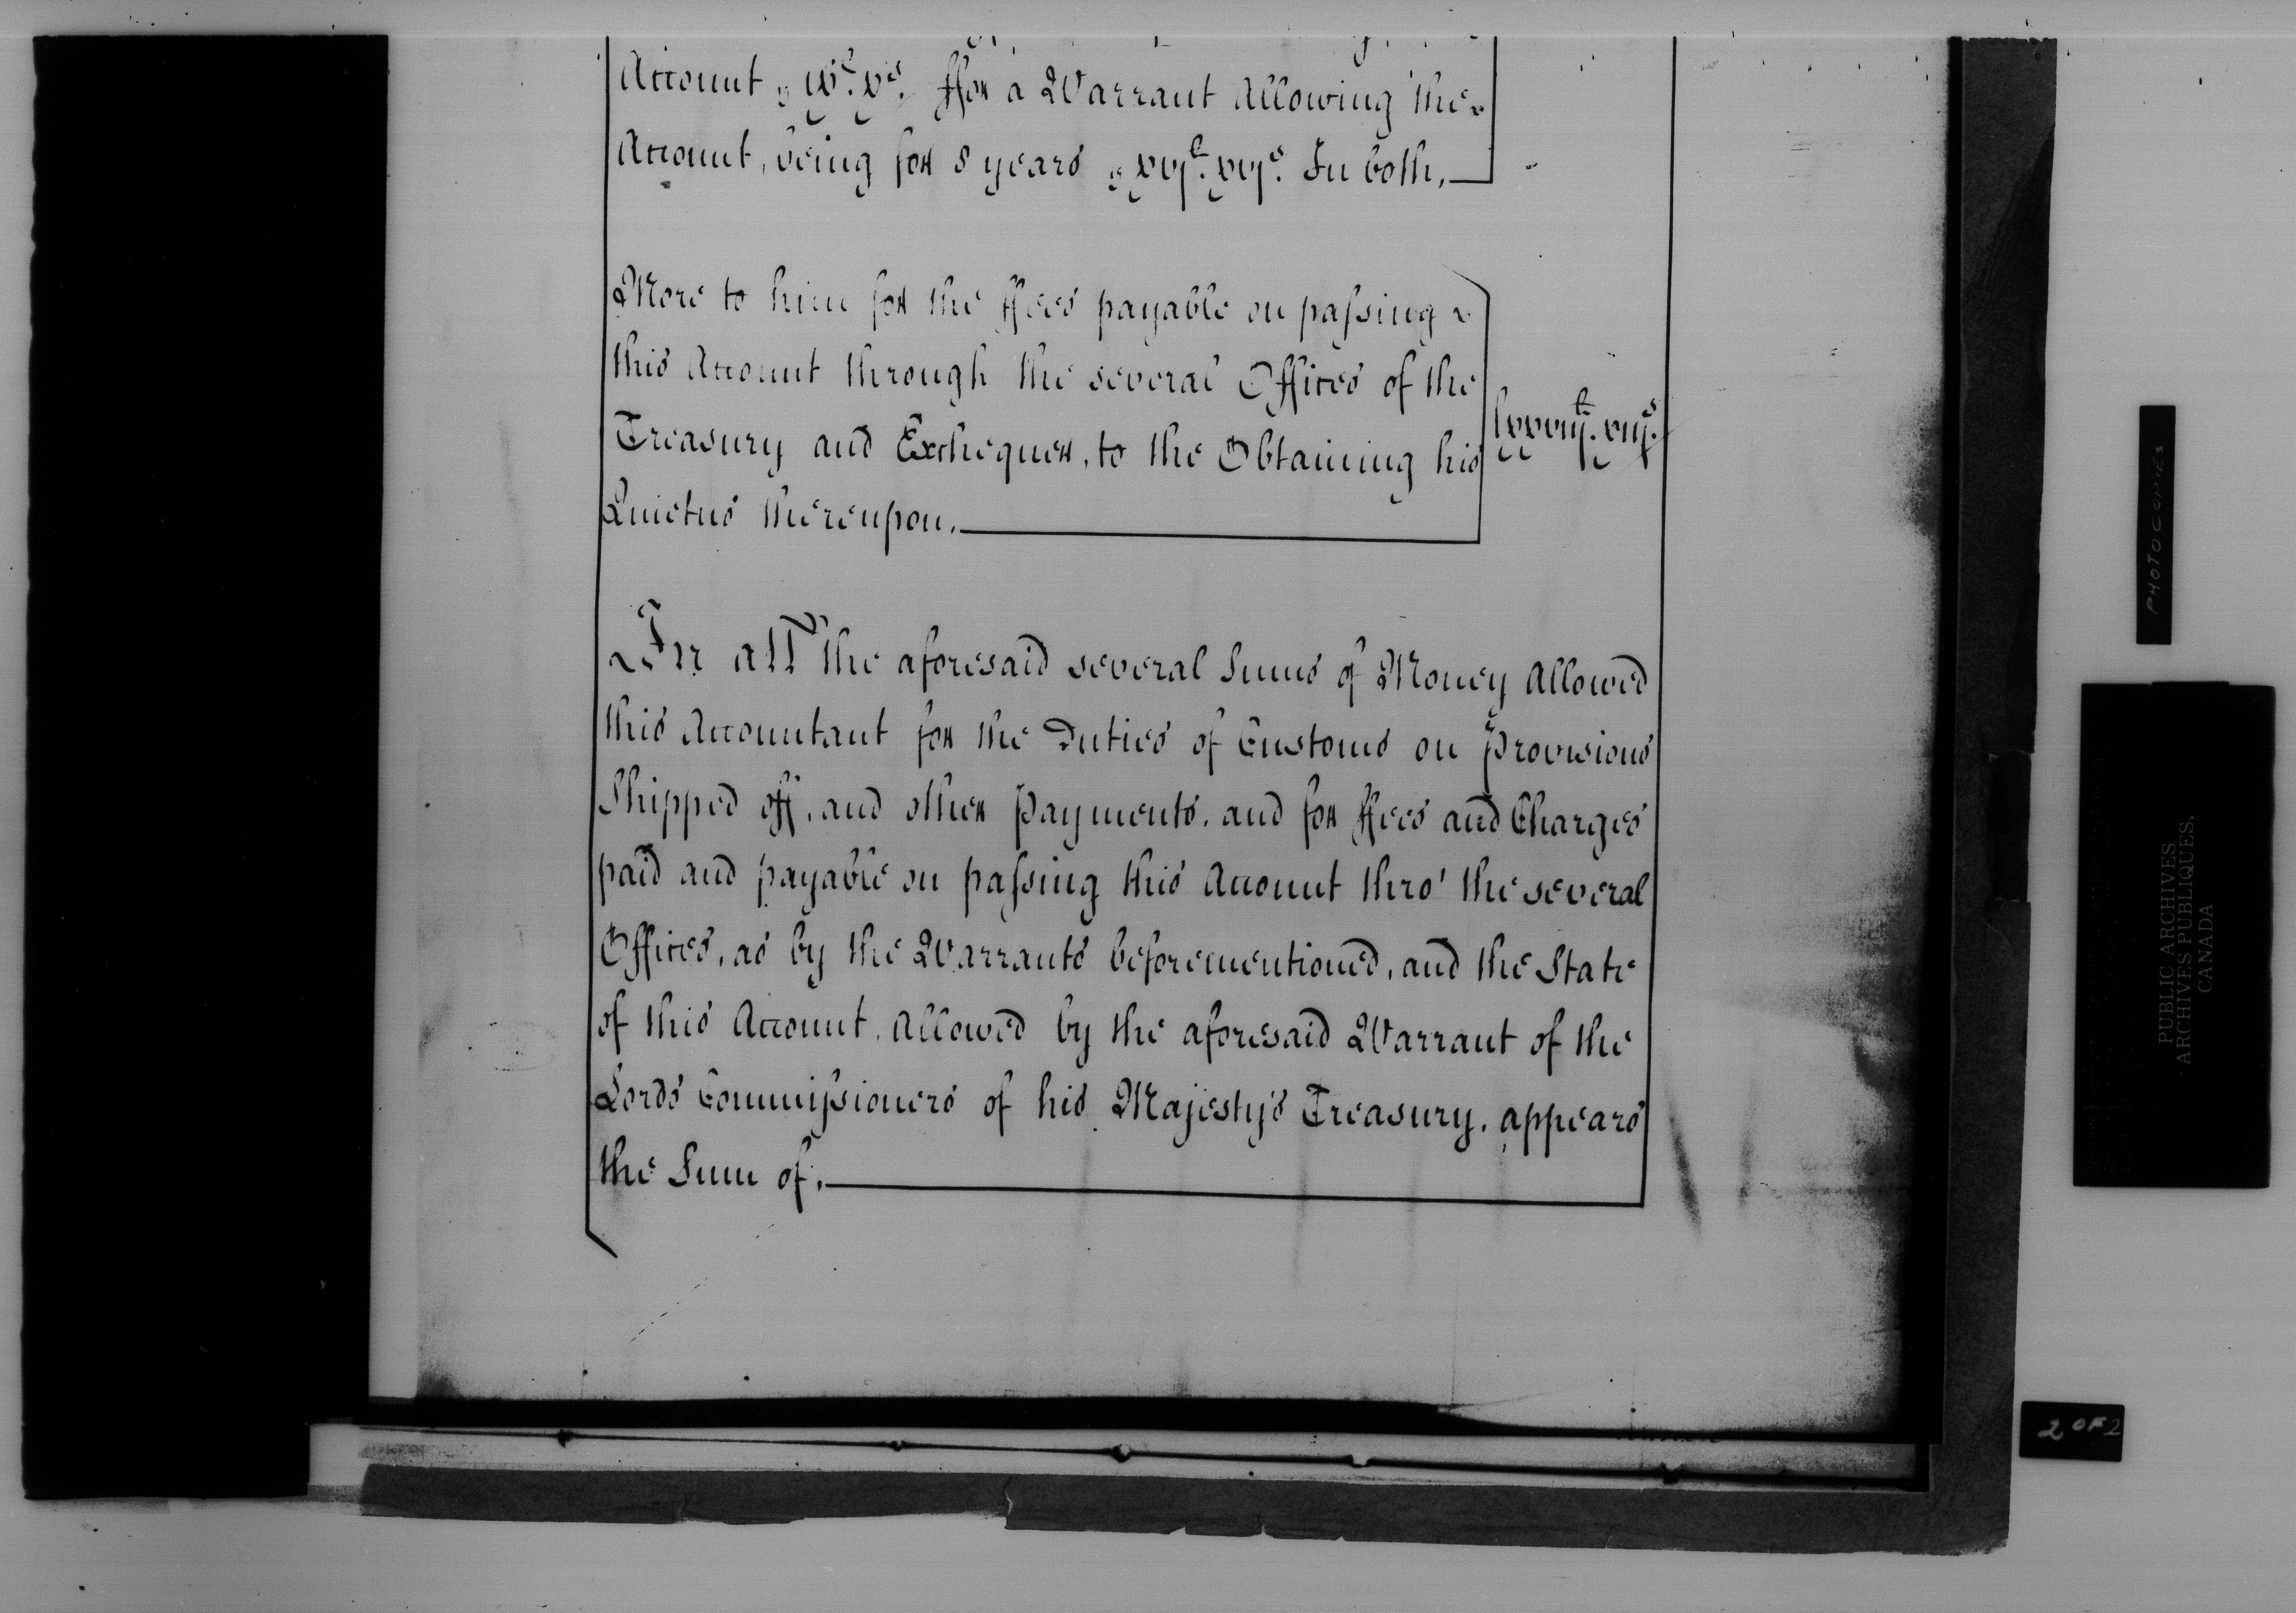 Account, ix£. xs. ffor a Warrant Allowing the
Account, being for 8 years, xvj£. xvjs. In both,
More to him for the ffees payable on passing
this Account through the several Offices of the
Treasury and Exchequer, to the Obtaining his
Quietus thereupon.
lxxxviij£. viijs.
In all the aforesaid several Sums of Money Allowed
this Accountant for the Duties of Customs on Provisions
Shipped off, and other Payments, and for ffees and Charges
paid and payable on passing this Account thro' the several
Offices, as by the Warrants beforementioned, and the State
of this Account, Allowed by the aforesaid Warrant of the
Lords Commissioners of his Majesty's Treasury, appears
the Sum of,
PHOTOCOPIES
PUBLIC ARCHIVES
ARCHIVES PUBLIQUES,
CANADA
2 OF 2